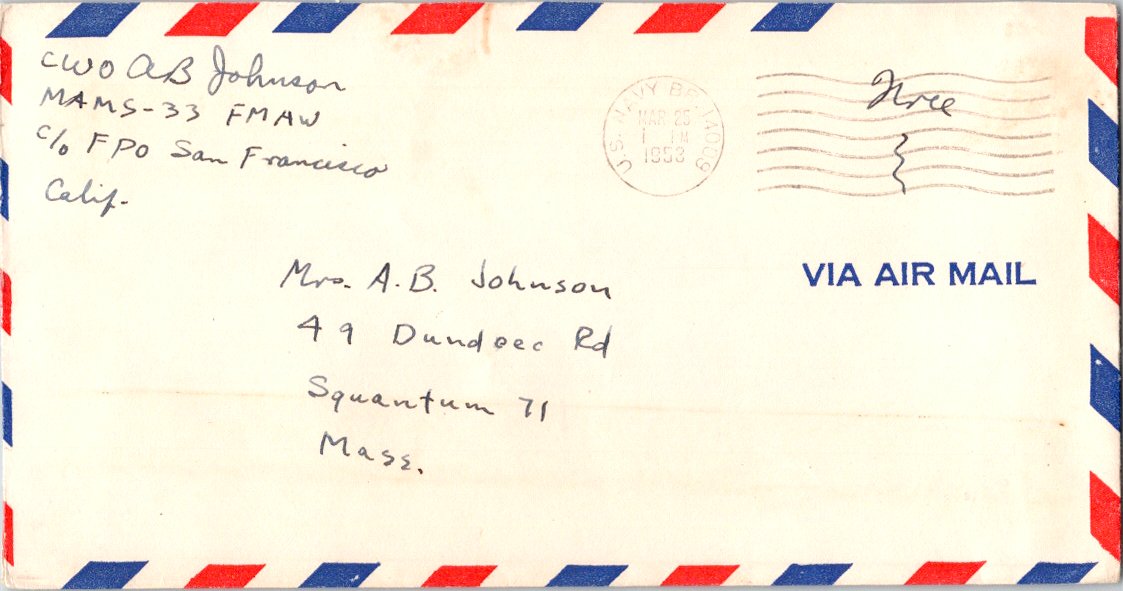 CWO AB Johnson
MAMS-33 FMAW
c/o FPO San Francisco
Calif.
U.S. NAVY BR. 14009
MAR 25
1 PM
1953
Free
VIA AIR MAIL
Mrs. A.B. Johnson
49 Dundee Rd
Squantum 71
Mass.